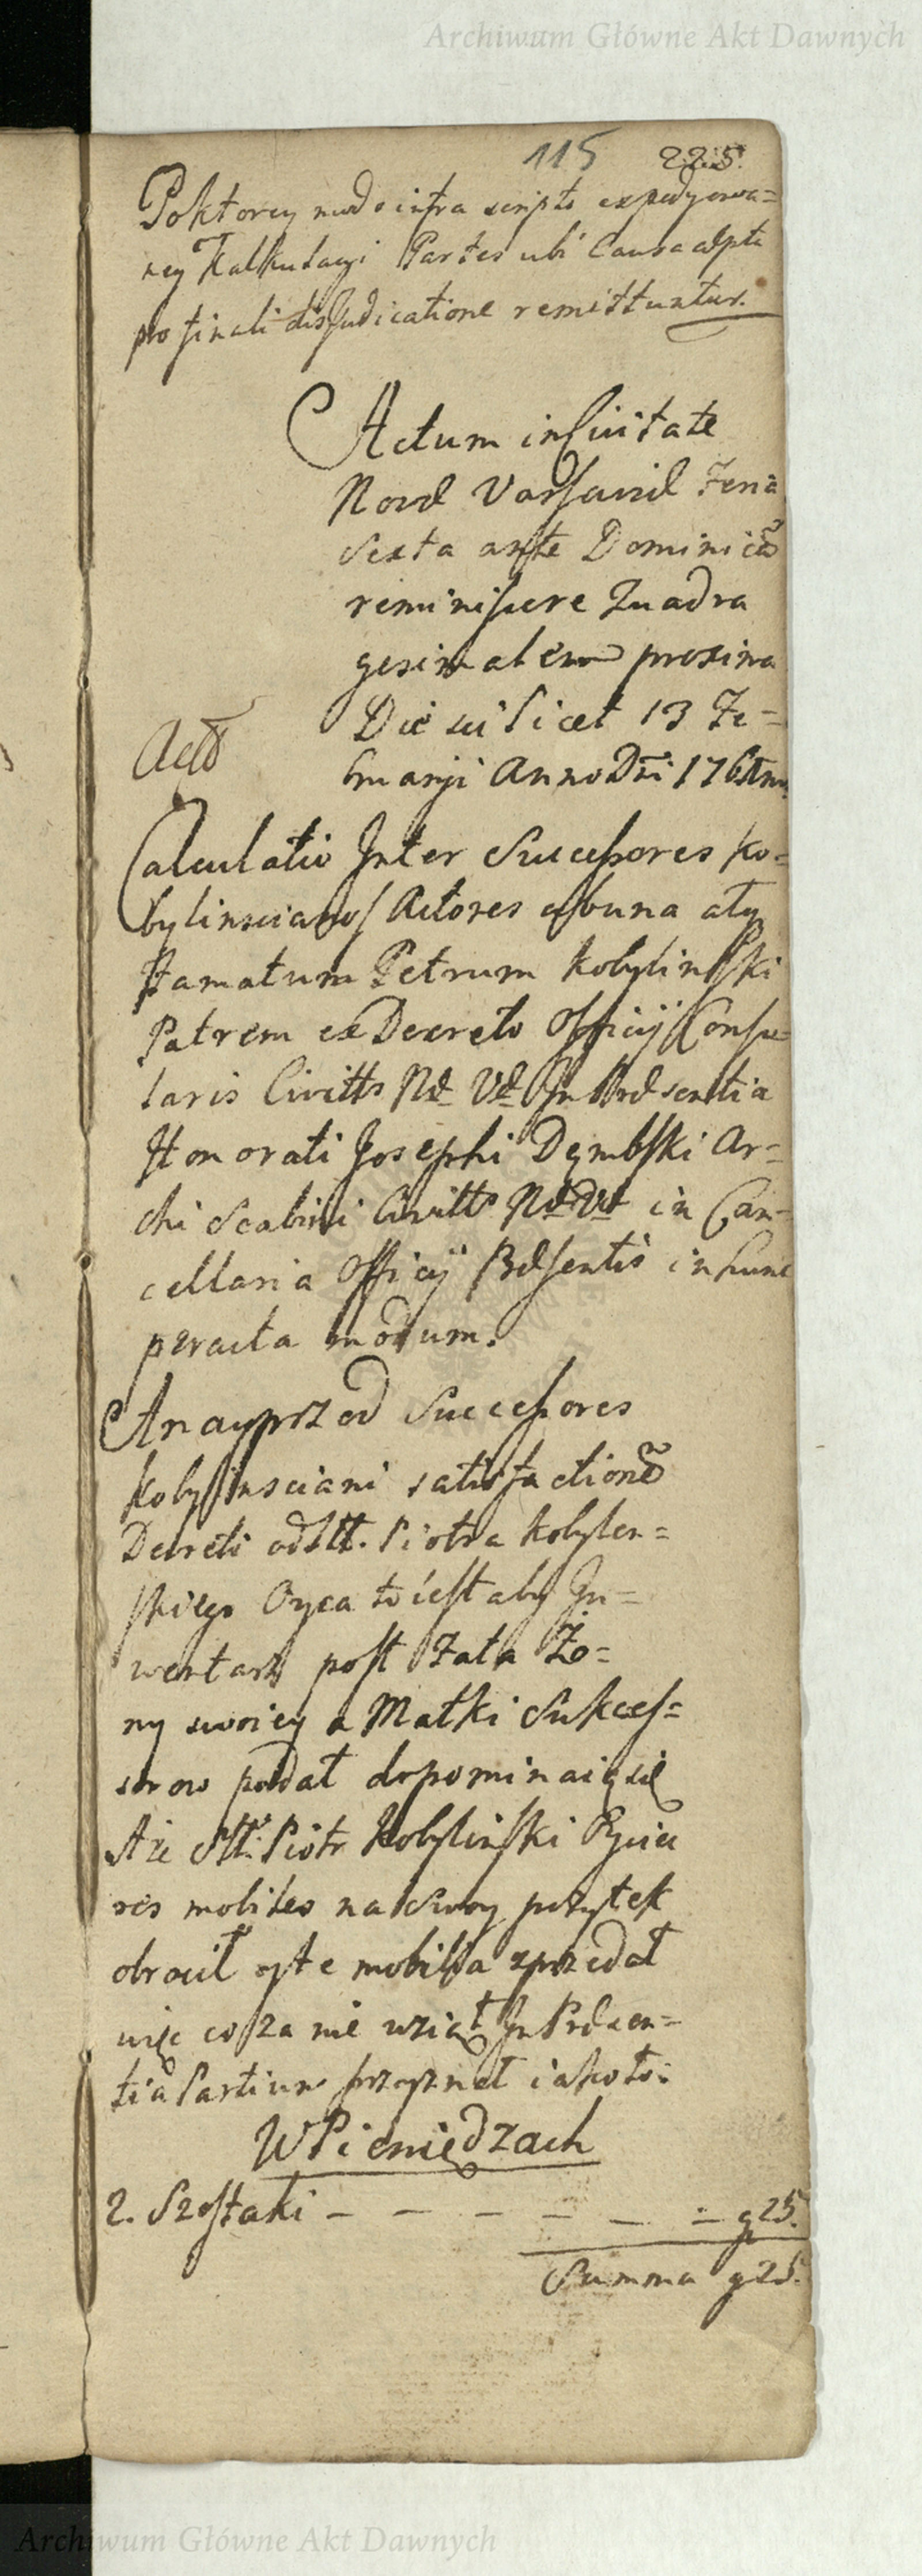 Archiwum Główne Akt Dawnych
115 225.
Poktorey modo infra scripto expedyowa=
ney Kalkulacyi Partes ubi Causa cæpta
pro finali disjudicatione remittuntur.
Actum in Civitate
Novæ Varsaviæ Feria
Sexta ante Dominicã
reminiscere Quadra
gesimalem proxima
Die scilicet 13 Fe=
bruarji Anno Dni
Calculatio Inter Successores Ko=
bylinscianos Actores ab una atq
Famatum Petrum Kobylinski
Patrem ex Decreto Officij Consu=
laris Civitts Næ Væ In Præsentia
Honorati Josephi Dymbski Ar=
chi Scabini Civitts Næ Væ in Can=
cellaria Officij Præsentis in hunc
peracta modum.
A nayprzod Successores
Kobylinsciani satisfactionẽ
Decreti od Stt. Piotra Kobylen=
skiego Oyca to iest aby In=
wentarz post Fata Żo=
ny swoiey a Matki Sukces=
sorow podał dopominaią się
A że Stt: Piotr Kobylinski Oyciec
res mobiles na swoy pożytek
obrocił y te mobilia zprzedał
więc co za nie wziął In Præsen=
tia Partium przyznał iako to:
W Pieniędzach
2. Szostaki - - - - - = g 25.
Summa g 25.
Archiwum Główne Akt Dawnych